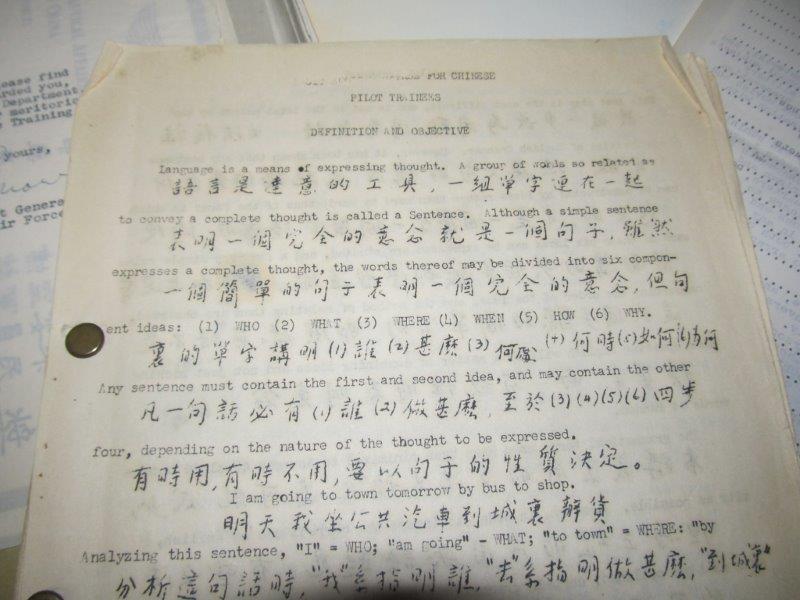 FOR CHINESE
PILOT TRAINEES
DEFINITION AND OBJECTIVE
Language is a means of expressing thought. A group of words so related as
語言是達意的工具，一組單字連在一起
to convey a complete thought is called a Sentence. Although a simple sentence
表明一個完全的意念就是一個句子，雖然
expresses a complete thought, the words thereof may be divided into six compon-
一個簡單的句子表明一個完全的意念，但句
ent ideas: (1) WHO (2) WHAT (3) WHERE (4) WHEN (5) HOW (6) WHY.
裏的單字講明(1)誰(2)甚麼(3)何處(4)何時(5)如何(6)為何
Any sentence must contain the first and second idea, and may contain the other
凡一句話必有(1)誰(2)做甚麼，至於(3)(4)(5)(6)四步
four, depending on the nature of the thought to be expressed.
有時用，有時不用，要以句子的性質決定。
I am going to town tomorrow by bus to shop.
明天我坐公共汽車到城裏辦貨
Analyzing this sentence, "I" = WHO; "am going" - WHAT; "to town" = WHERE: "by
分析這句話時，"我"系指明誰，"去"系指明做甚麼，"到城裏"
ease find
rded you,
Department
meritorio
Training
yours,
t General
ir Force